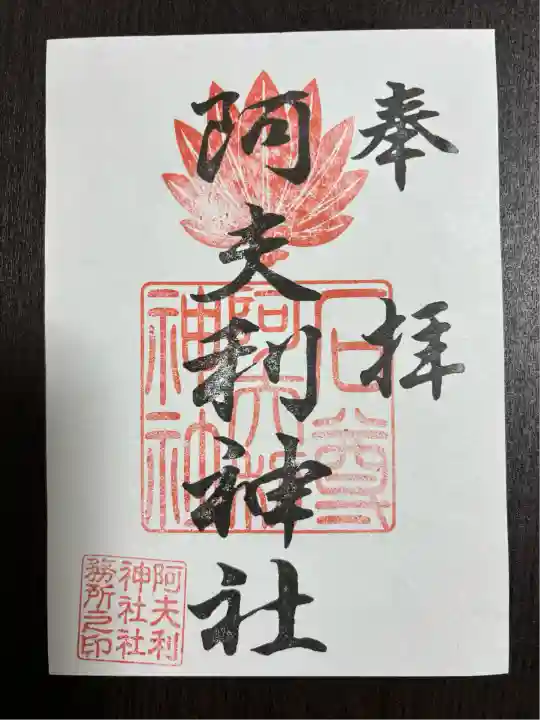 奉拝
阿夫利神社
石尊
神社
阿夫利
神社社
務所之印